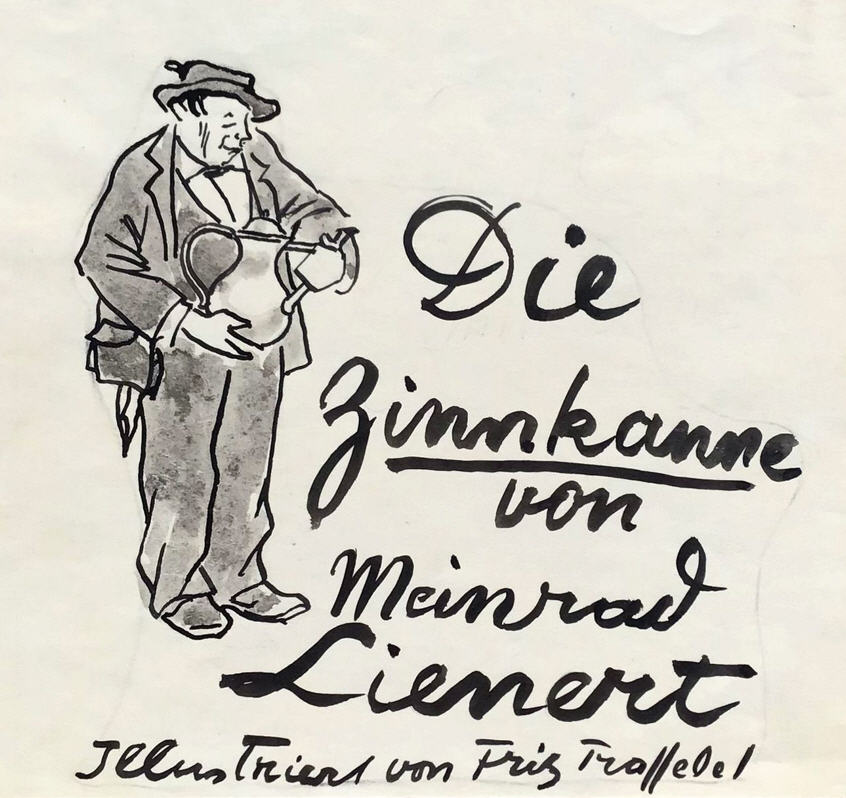 Die
Zinnkanne
von
Meinrad
Lienert
Illustriert von Fritz Traffelet